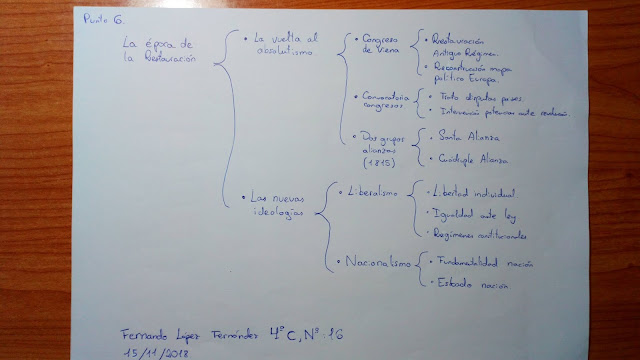 Punto 6.
La época de
la Restauración
• La vuelta al
absolutismo
• Congreso
de Viena
• Restauración
Antiguo Régimen.
• Reconstrucción mapa
político Europa.
• Convocatoria
congresos
• Trato disputas países.
• Intervención potencias ante revolución.
• Dos grupos
alianzas
(1815)
• Santa Alianza
• Cuádruple Alianza
• Las nuevas
ideologías
• Liberalismo
• Libertad individual
• Igualdad ante ley
• Regímenes constitucionales
• Nacionalismo
• Fundamentalidad nación
• Estado nación
Fernando López Fernández 4º C, Nº: 16
15/11/2018